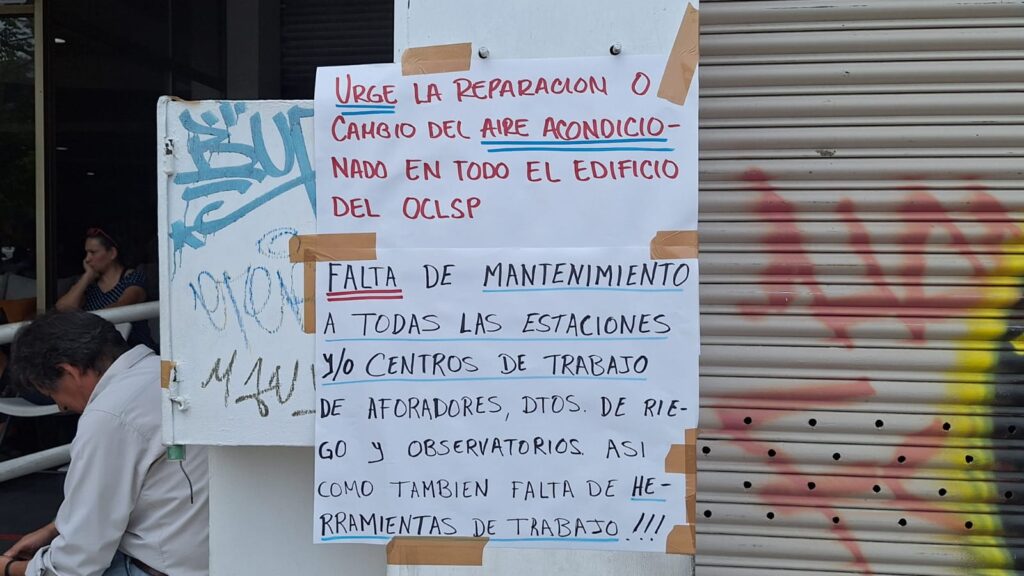 URGE LA REPARACION O
CAMBIO DEL AIRE ACONDICIO-
NADO EN TODO EL EDIFICIO
DEL OCLSP
FALTA DE MANTENIMIENTO
A TODAS LAS ESTACIONES
Y/O CENTROS DE TRABAJO
DE AFORADORES, DTOS. DE RIE-
GO y OBSERVATORIOS ASI
COMO TAMBIEN FALTA DE HE-
RRAMIENTAS DE TRABAJO !!!